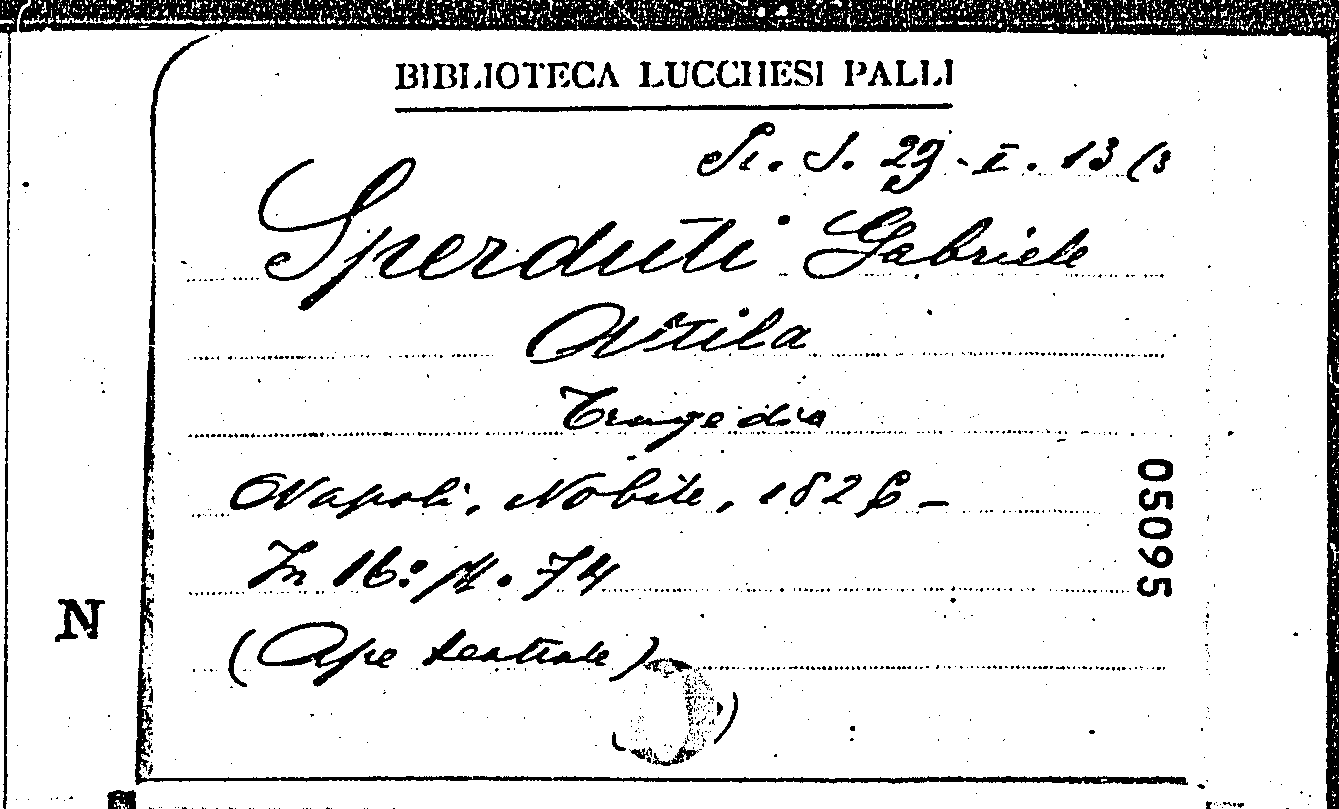 BIBLIOTECA LUCCHESI PALLI
St. S. 29-I.13(3
Sperduti Gabriele
Attila
Tragedia
Napoli, Nobile, 1826 -
In 16: pp. 74
(Ape teatrale)
05095
N